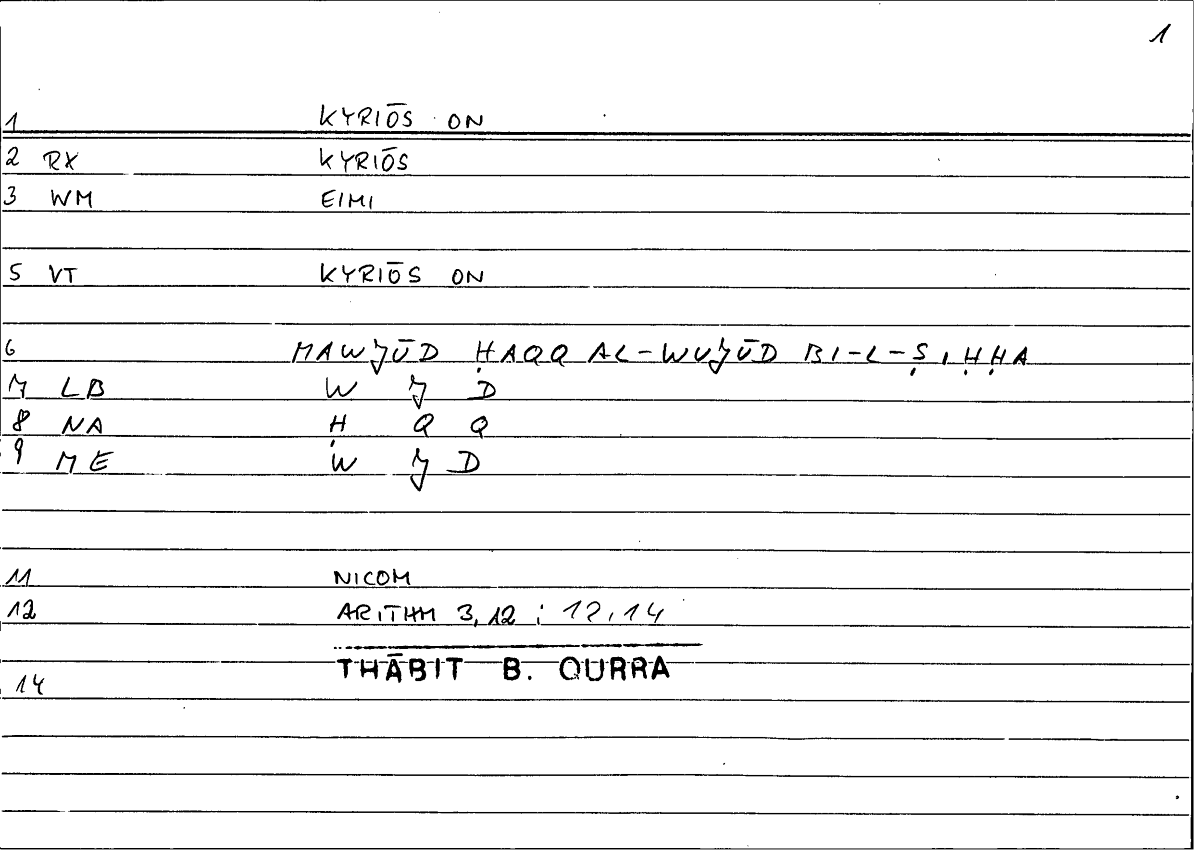 1
1 KYRIŌS ON
2 RX KYRIŌS
3 WM EIMI
5 VT KYRIŌS ON
6 MAWJŪD ḤAQQ AL-WUJŪD BI-L-ṢIḤḤA
7 LB W J D
8 NA Ḥ Q Q
9 ME W J D
11 NICOM
12 ARITHM 3,12 ; 12,14
THĀBIT B. QURRA
14